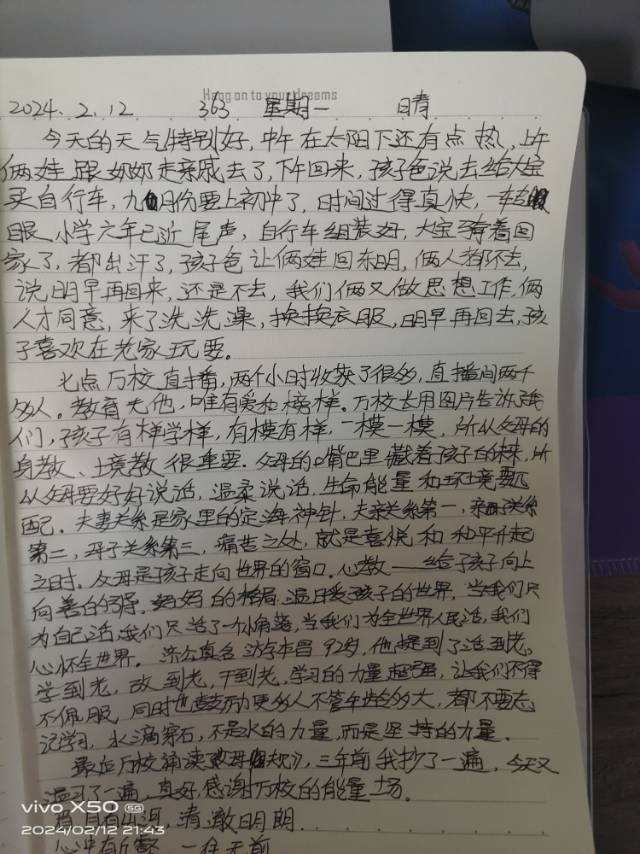 Hang on to your dreams
2024. 2. 12 363 星期一 晴
今天的天气特别好，中午在太阳下还有点热，上午
俩娃跟奶奶走亲戚去了，下午回来，孩子爸说去给大宝
买自行车，九月份要上初中了，时间过得真快，一转
眼小学六年已近尾声，自行车组装好，大宝骑着回
家了，都出汗了，孩子爸让俩娃回东明，俩人都不去，
说明早再回来，还是不去，我们俩又做思想工作，俩
人才同意，来了洗洗澡，换换衣服，明早再回去，孩
子喜欢在老家玩耍。
七点万校直播，两个小时收获了很多，直播间两千
多人。教育无他，唯有爱和榜样。万校长用图片告诉了我
们，孩子有样学样，有模有样，一模一模，所以父母的
身教、境教很重要。父母的嘴巴里藏着孩子的未来，所
以父母要好好说话，温柔说话，生命能量和环境要匹
配。夫妻关系是家里的定海神针，夫妻关系第一，亲子关系
第二，母子关系第三，痛苦之处，就是喜悦和和平升起
之时。父母是孩子走向世界的窗口。心教——给了孩子向上
向善的引领。妈妈的格局温暖孩子的世界，当我们只
为自己活，我们只活了一个角落，当我们为全世界人民活，我们
心怀全世界。济公真名游本昌92岁，他提到了活到老，
学到老，改到老，干到老，学习的力量超强，让我们不得
不佩服，同时也鼓励更多人不管年龄多大，都不要忘
记学习，水滴穿石，不是水的力量，而是坚持的力量。
最后万校诵读《父母规》，三年前我抄了一遍，今天又
温习了一遍，真好，感谢万校的能量场。
月有山河，清澈明朗
心中有所 一往无前
vivo X50 5G
2024/02/12 21:43